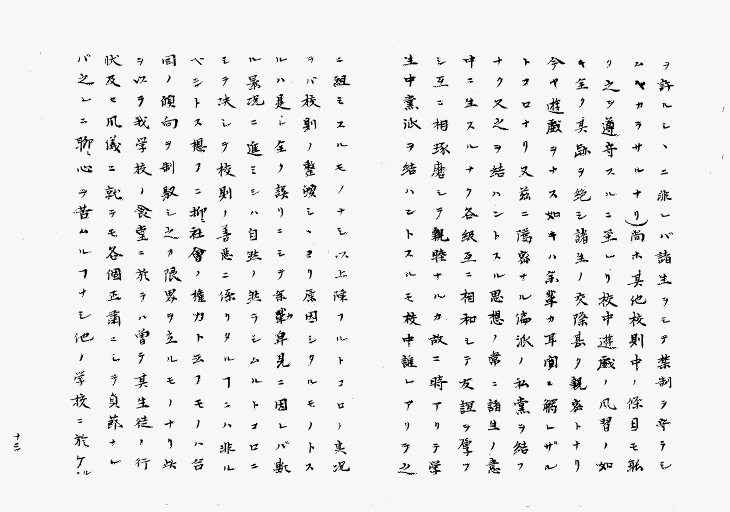 ヲ許ルシヽニ非レバ諸生ヲシテ禁制ヲ守ラシ
ムヤカラサルナリ)尚ホ其他校則中ノ條目モ
リ之ヲ遵守スルニ至レリ校中遊戯ノ風習ノ如
キ全ク其跡ヲ絶シ諸生ノ交際甚タ親密トナリ
今ヤ遊戯ヲナス如キハ余輩カ耳聞ニ觸レザル
トコロナリ又茲ニ隠密ナル偏派ノ私黨ヲ結フ
ナク又之ヲ結ハントスル思想ノ常ニ諸生ノ意
中ニ生スルナク各級互ニ相和シテ友誼ヲ厚フ
シ互ニ相琢磨シテ親睦ナルカ故ニ時アリテ学
生中黨派ヲ結ハントスルモ校中誰レアリテ之
ニ組ミスルモノナシ以上陳フルトコロノ真況
ヲバ校則ノ整頓シヽヨリ原因シタルモノトス
ルハ是レ全ク誤リニシテ余輩卑見ニ因レバ斯
ル景況ニ進ミシハ自然ノ然ラシムルトコロニ
シテ决シテ校則ノ善悪ニ係リタルフニハ非ル
ベシトス想フニ抑社會ノ権力ト云フモノハ合
同ノ傾向ヲ制馭シ之カ限界ヲ立ルモノナリ故
ヲ以テ我学校ノ食堂ニ於テハ曽テ其生徒ノ行
状及ヒ風儀ニ就テモ各個正肅ニシテ貞節ナレ
バ之レニ聊心ヲ苦ムルフナシ他ノ学校ニ於ケル
十三